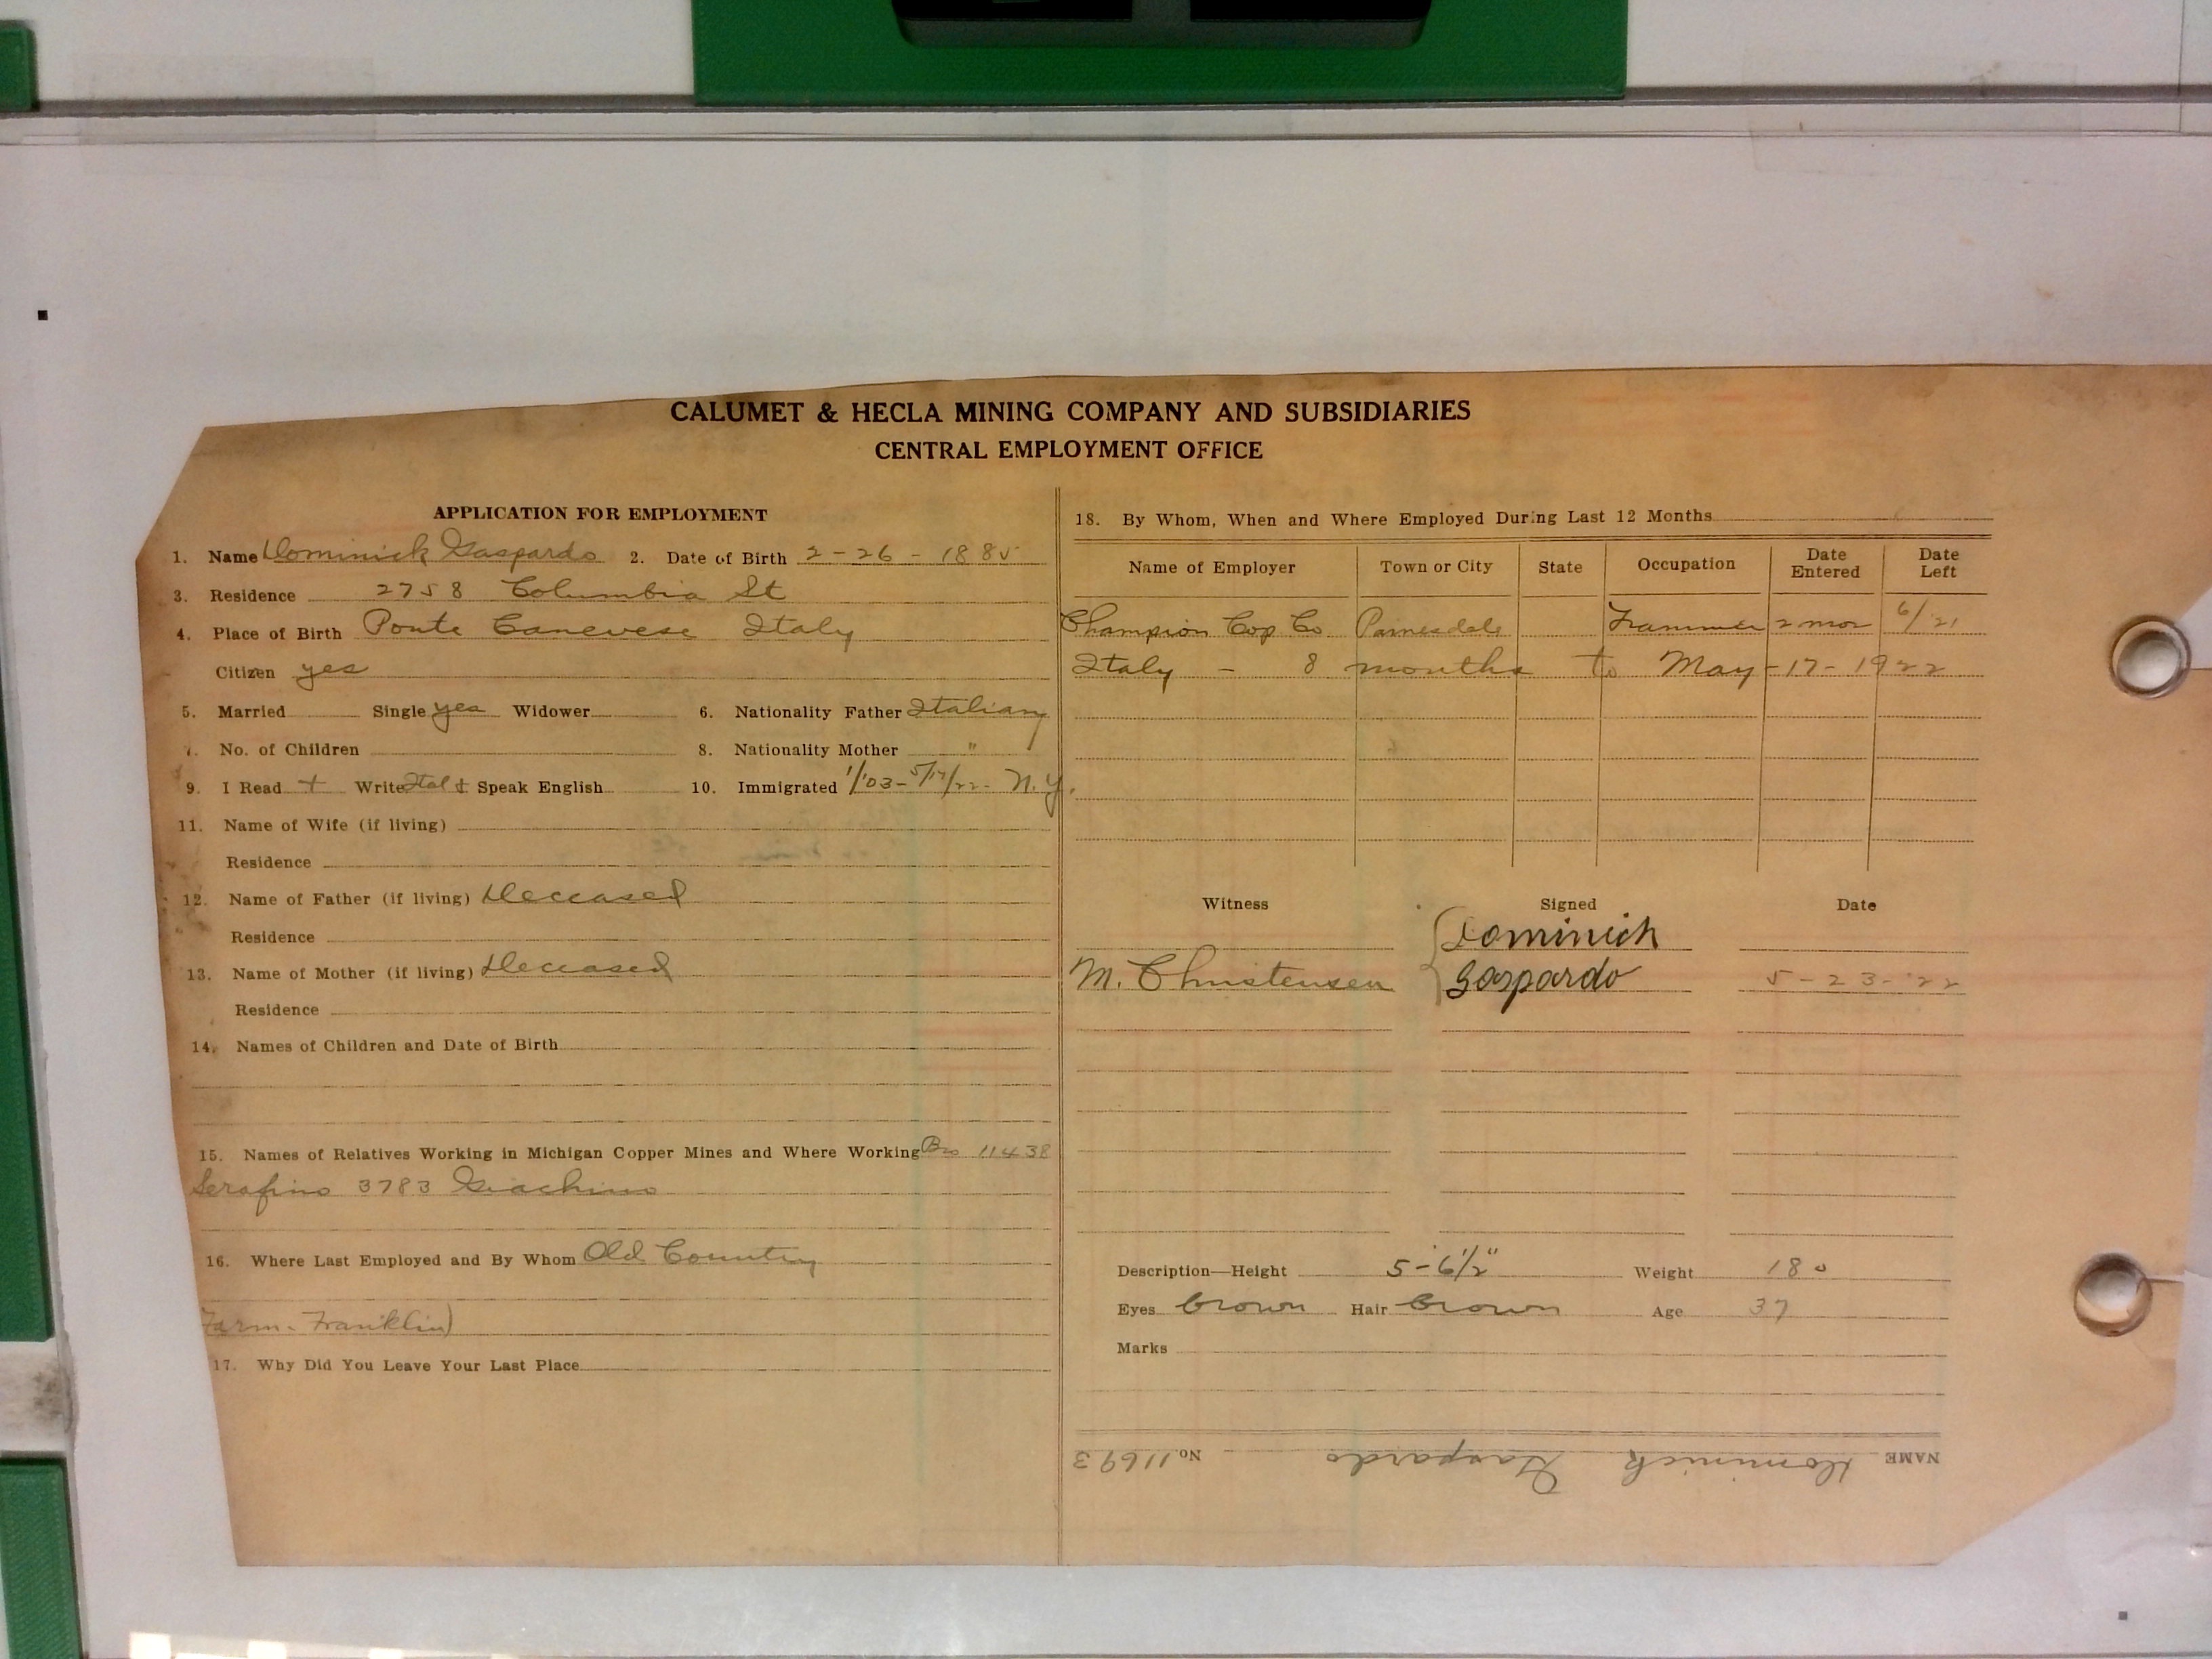 CALUMET & HECLA MINING COMPANY AND SUBSIDIARIES
CENTRAL EMPLOYMENT OFFICE
APPLICATION FOR EMPLOYMENT
1. Name Dominick Gaspardo 2. Date of Birth 2-26-1885
3. Residence 2758 Columbia St
4. Place of Birth Ponte Canevese Italy
Citizen yes
5. Married Single yes Widower 6. Nationality Father Italian
7. No. of Children 8. Nationality Mother "
9. I Read + Write Ital + Speak English 10. Immigrated 1/'03-5/17/22- N.Y.
11. Name of Wife (if living)
Residence
12. Name of Father (if living) Deceased
Residence
13. Name of Mother (if living) Deceased
Residence
14. Names of Children and Date of Birth
15. Names of Relatives Working in Michigan Copper Mines and Where Working Bro 11438
Serafino 3783 Giachino
16. Where Last Employed and By Whom Old Country
Farm-Franklin)
17. Why Did You Leave Your Last Place
18. By Whom, When and Where Employed During Last 12 Months
Name of Employer Town or City State Occupation Date Entered Date Left
Champion Cop Co Painesdale Trammer 2 mos 6/21
Italy - 8 months to May-17-1922
Witness Signed Date
Dominich
M. Christensen Gaspardo 5-23-'22
Description—Height 5'-6 1/2" Weight 180
Eyes brown Hair brown Age 37
Marks
NAME Dominick Gaspardo No. 11693